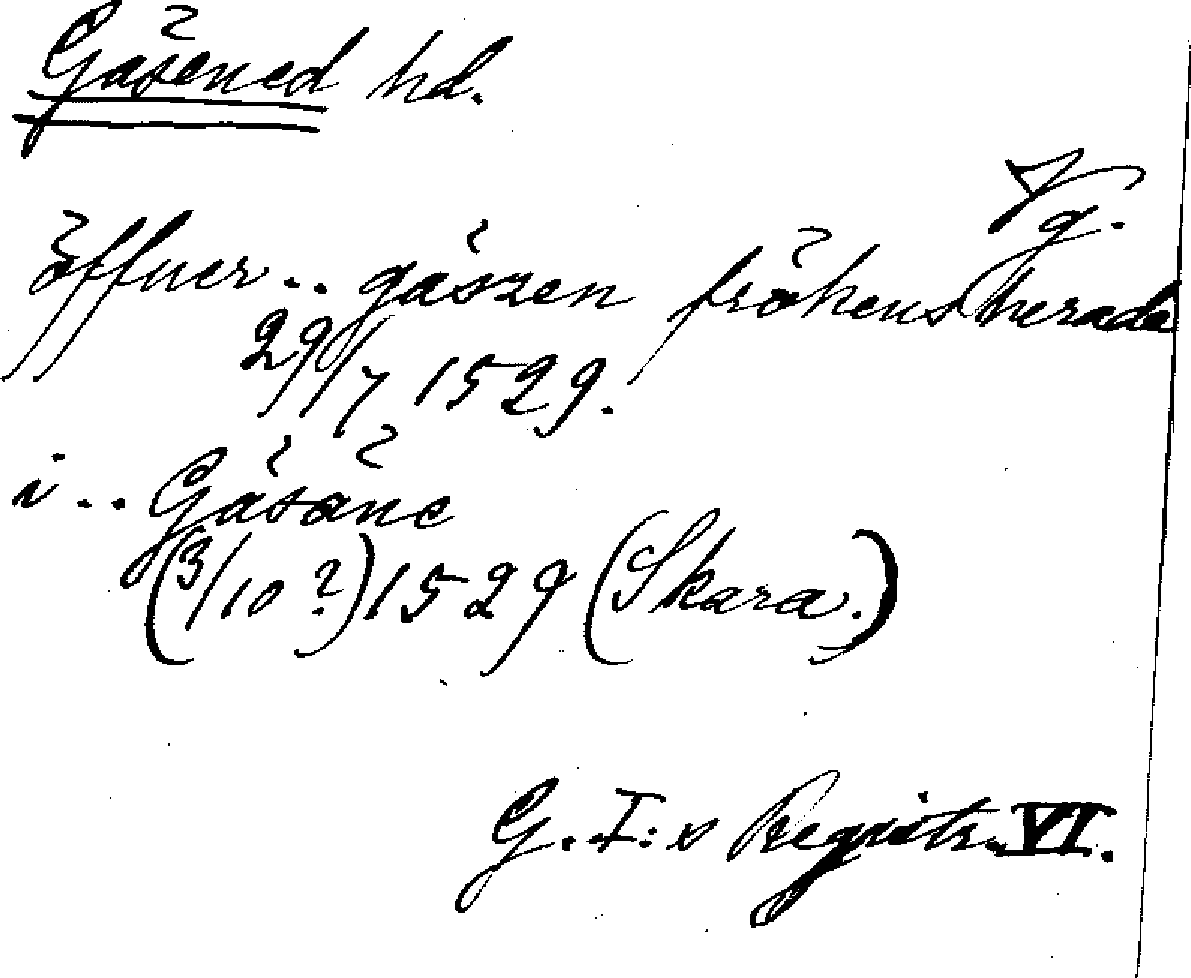 Gåsened hd.
Vg.
öffuer.. gåszen frökens herade
29/7 1529.
i.. Gåsäne
(3/10 ?) 1529 (Skara.)
G. I:s Registr. VI.